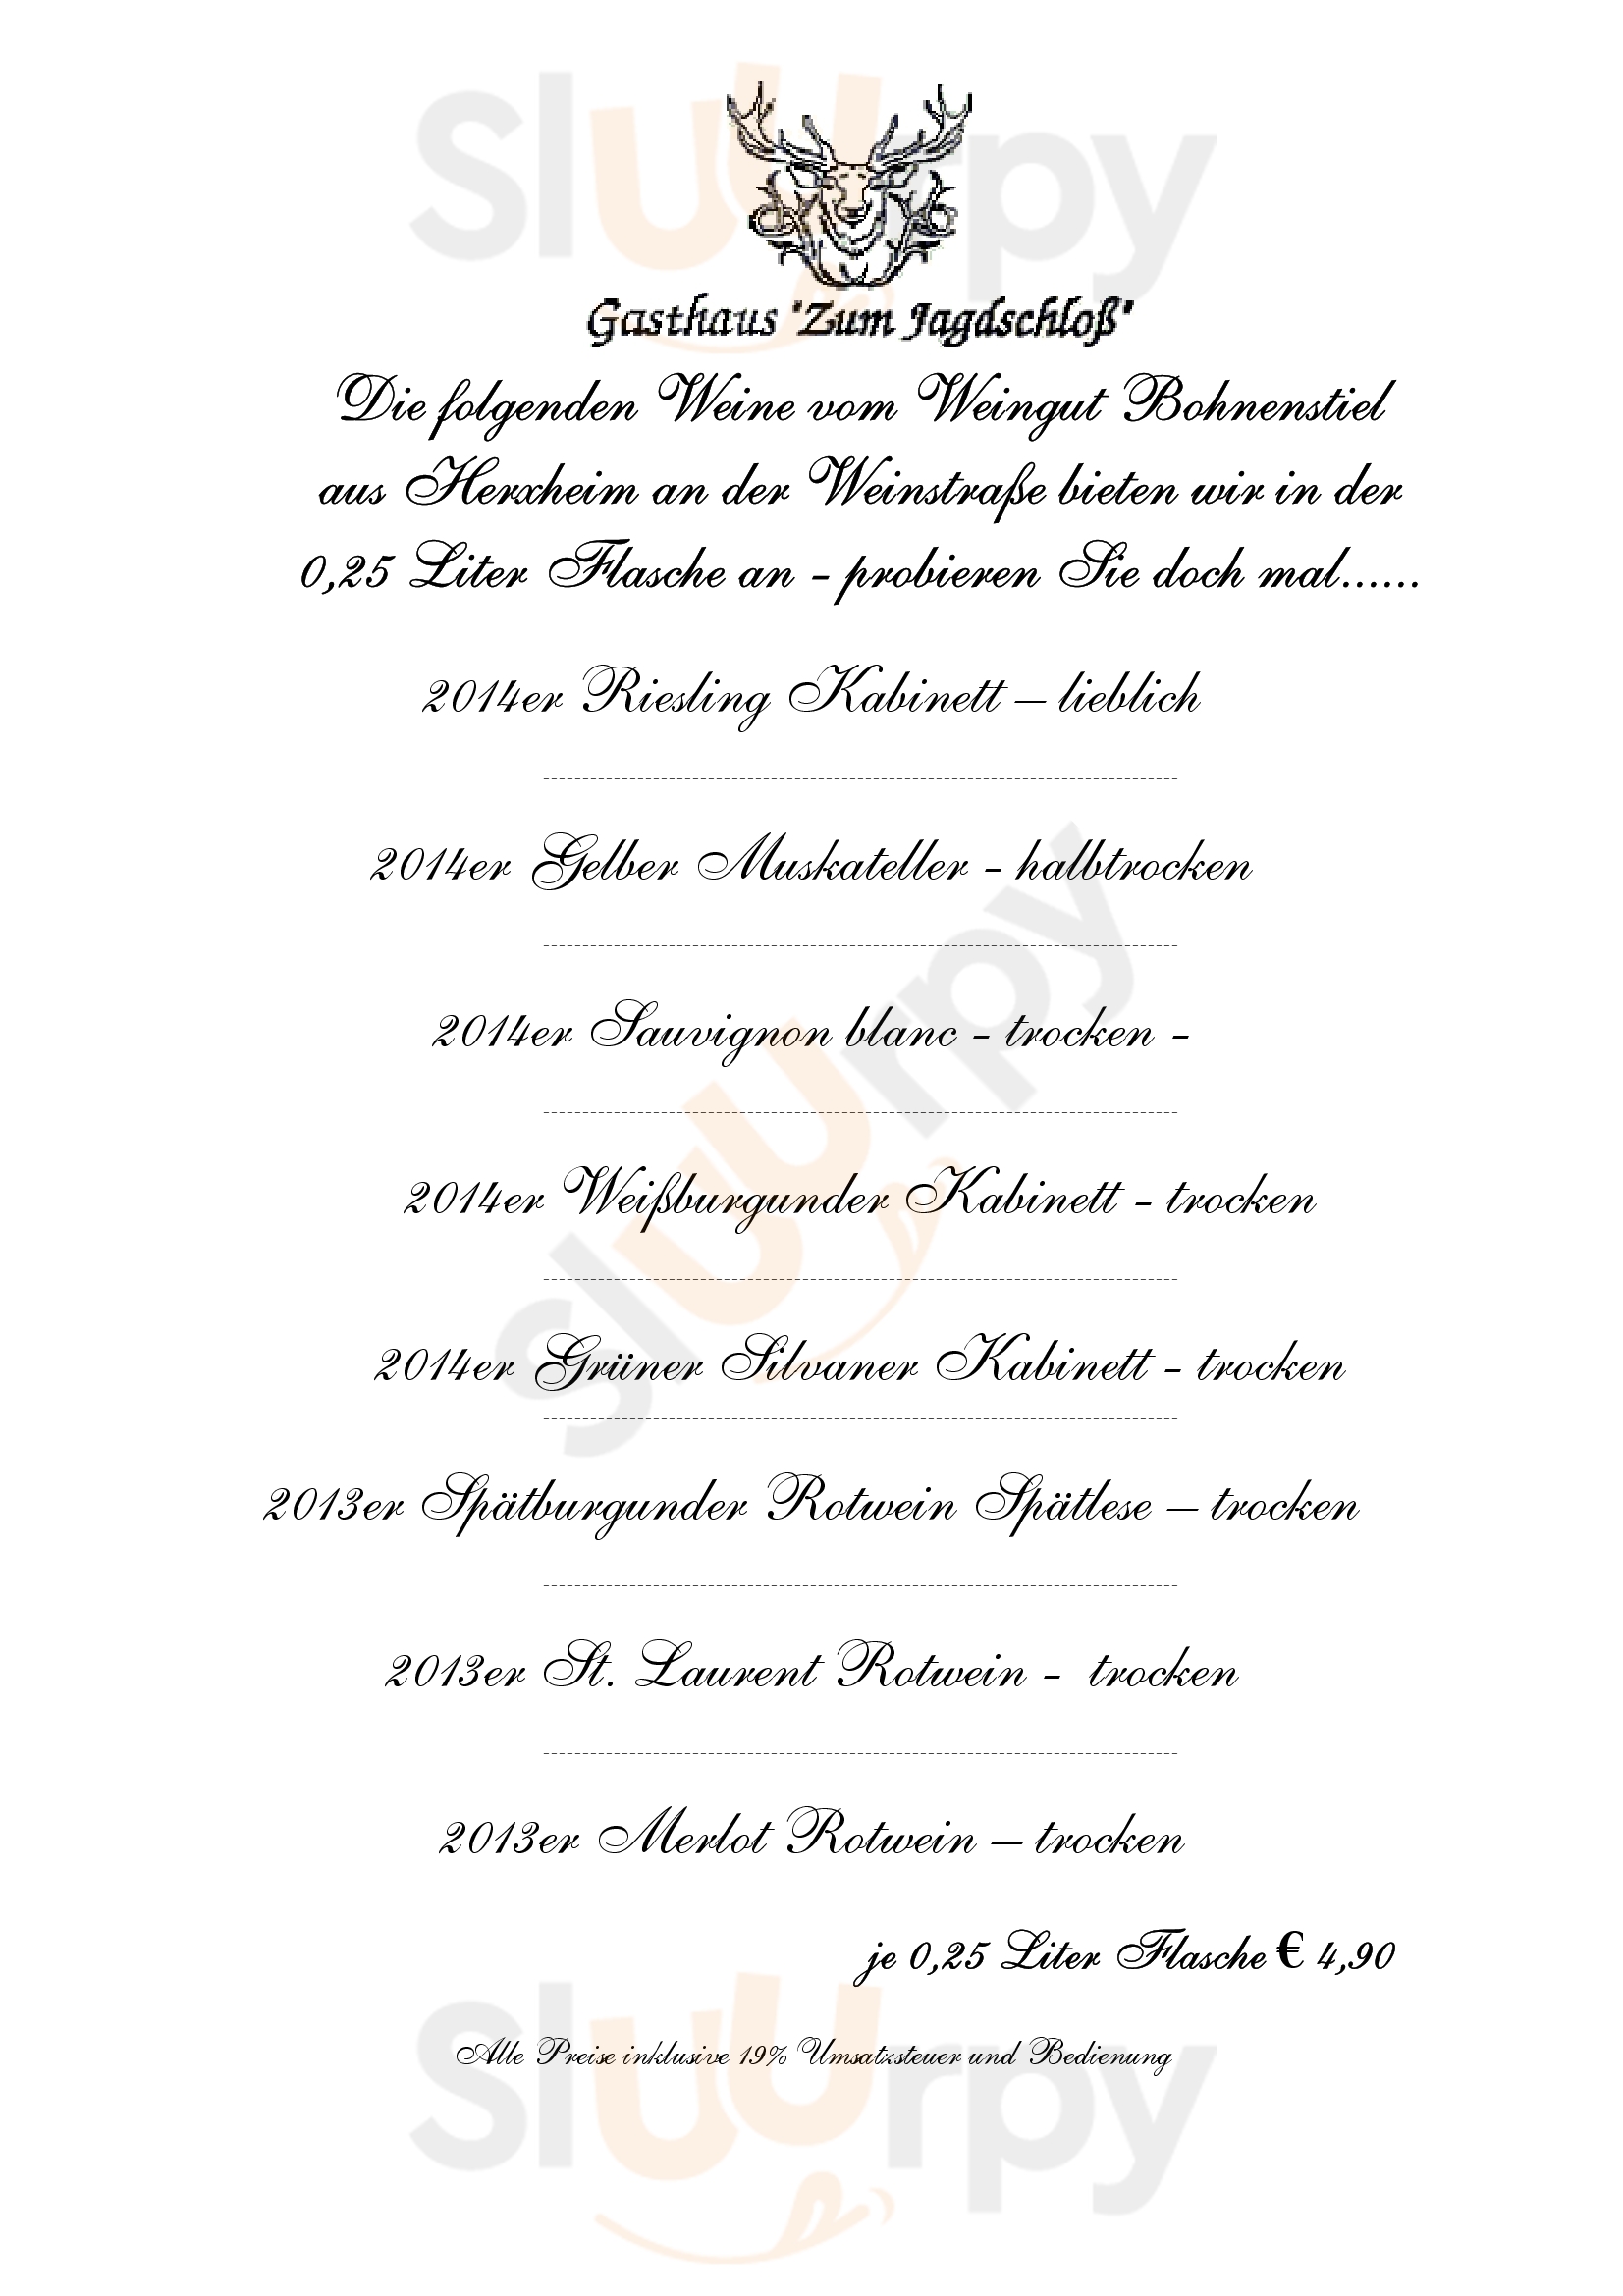 Sluurpy
Gasthaus "Zum Jagdschloß"
Die folgenden Weine vom Weingut Bohnenstiel
aus Herxheim an der Weinstraße bieten wir in der
0,25 Liter Flasche an - probieren Sie doch mal......
2014er Riesling Kabinett – lieblich
2014er Gelber Muskateller - halbtrocken
2014er Sauvignon blanc - trocken -
2014er Weißburgunder Kabinett - trocken
Sluurpy
2014er Grüner Silvaner Kabinett - trocken
2013er Spätburgunder Rotwein Spätlese – trocken
2013er St. Laurent Rotwein - trocken
2013er Merlot Rotwein – trocken
je 0,25 Liter Flasche € 4,90
Alle Preise inklusive 19% Umsatzsteuer und Bedienung
Sluurpy